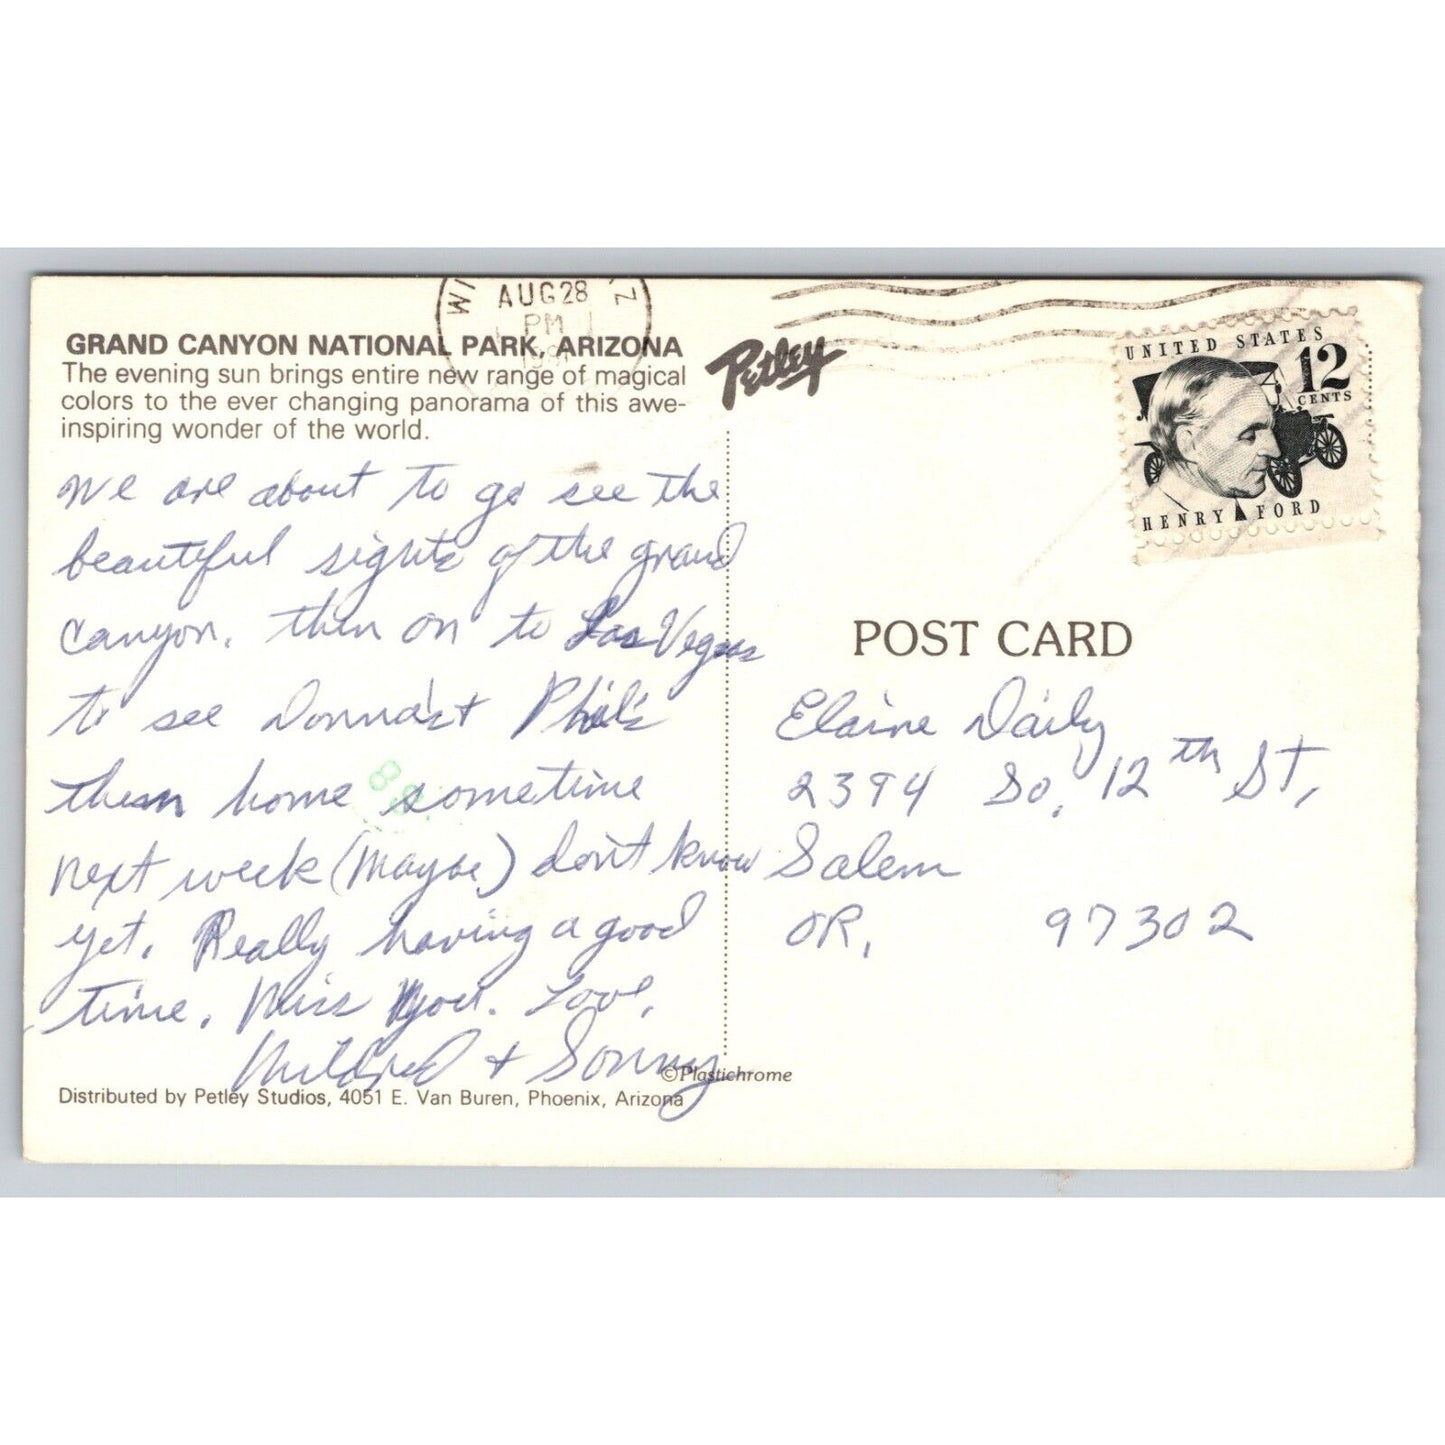 AUG 28
PM
GRAND CANYON NATIONAL PARK, ARIZONA
The evening sun brings entire new range of magical
colors to the ever changing panorama of this awe-
inspiring wonder of the world.
Petley
UNITED STATES
12
CENTS
HENRY FORD
We are about to go see the
beautiful sights of the grand
Canyon. then on to Las Vegas
to see Donna's + Phil's
then home sometime
next week (Maybe) don't know
yet. Really having a good
time. Miss you. Love,
Mildred + Sonny
POST CARD
Elaine Daily
2394 So. 12th St,
Salem
OR, 97302
©Plastichrome
Distributed by Petley Studios, 4051 E. Van Buren, Phoenix, Arizona